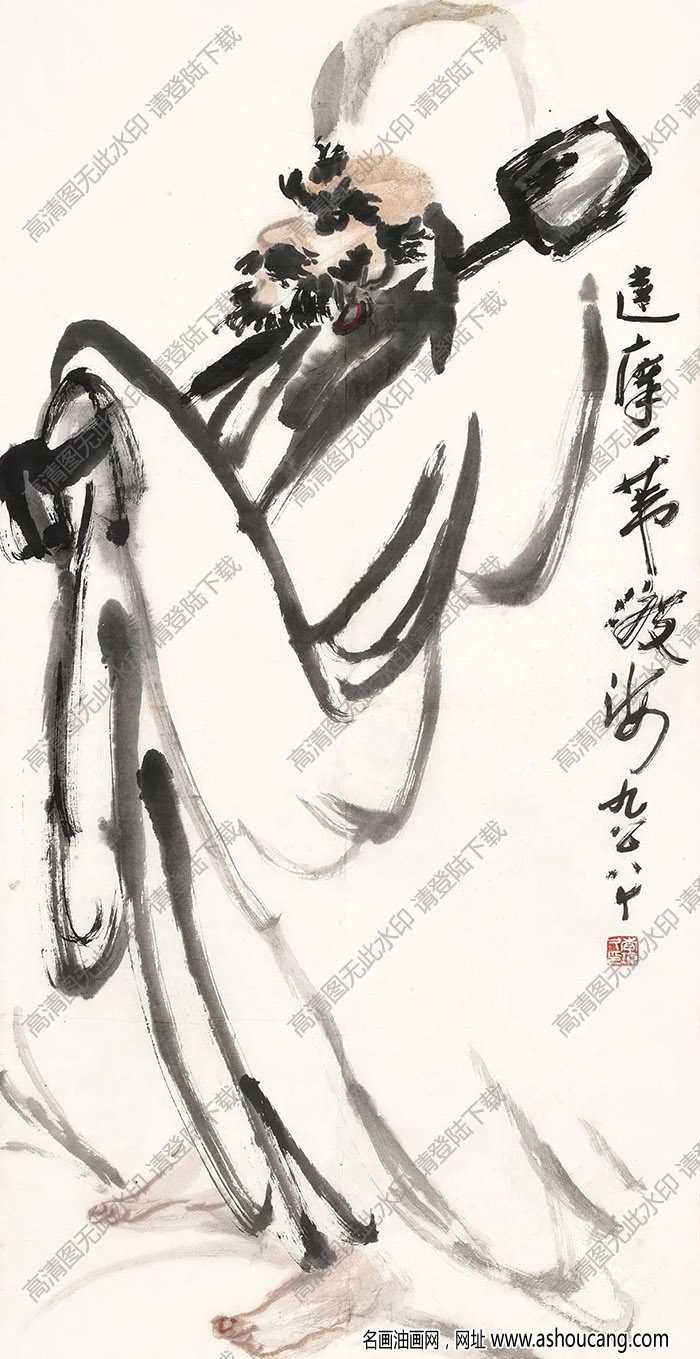 達摩一苇渡海 九公八十
高清图无此水印 请登陆下载
名画油画网，网址 www.ashoucang.com